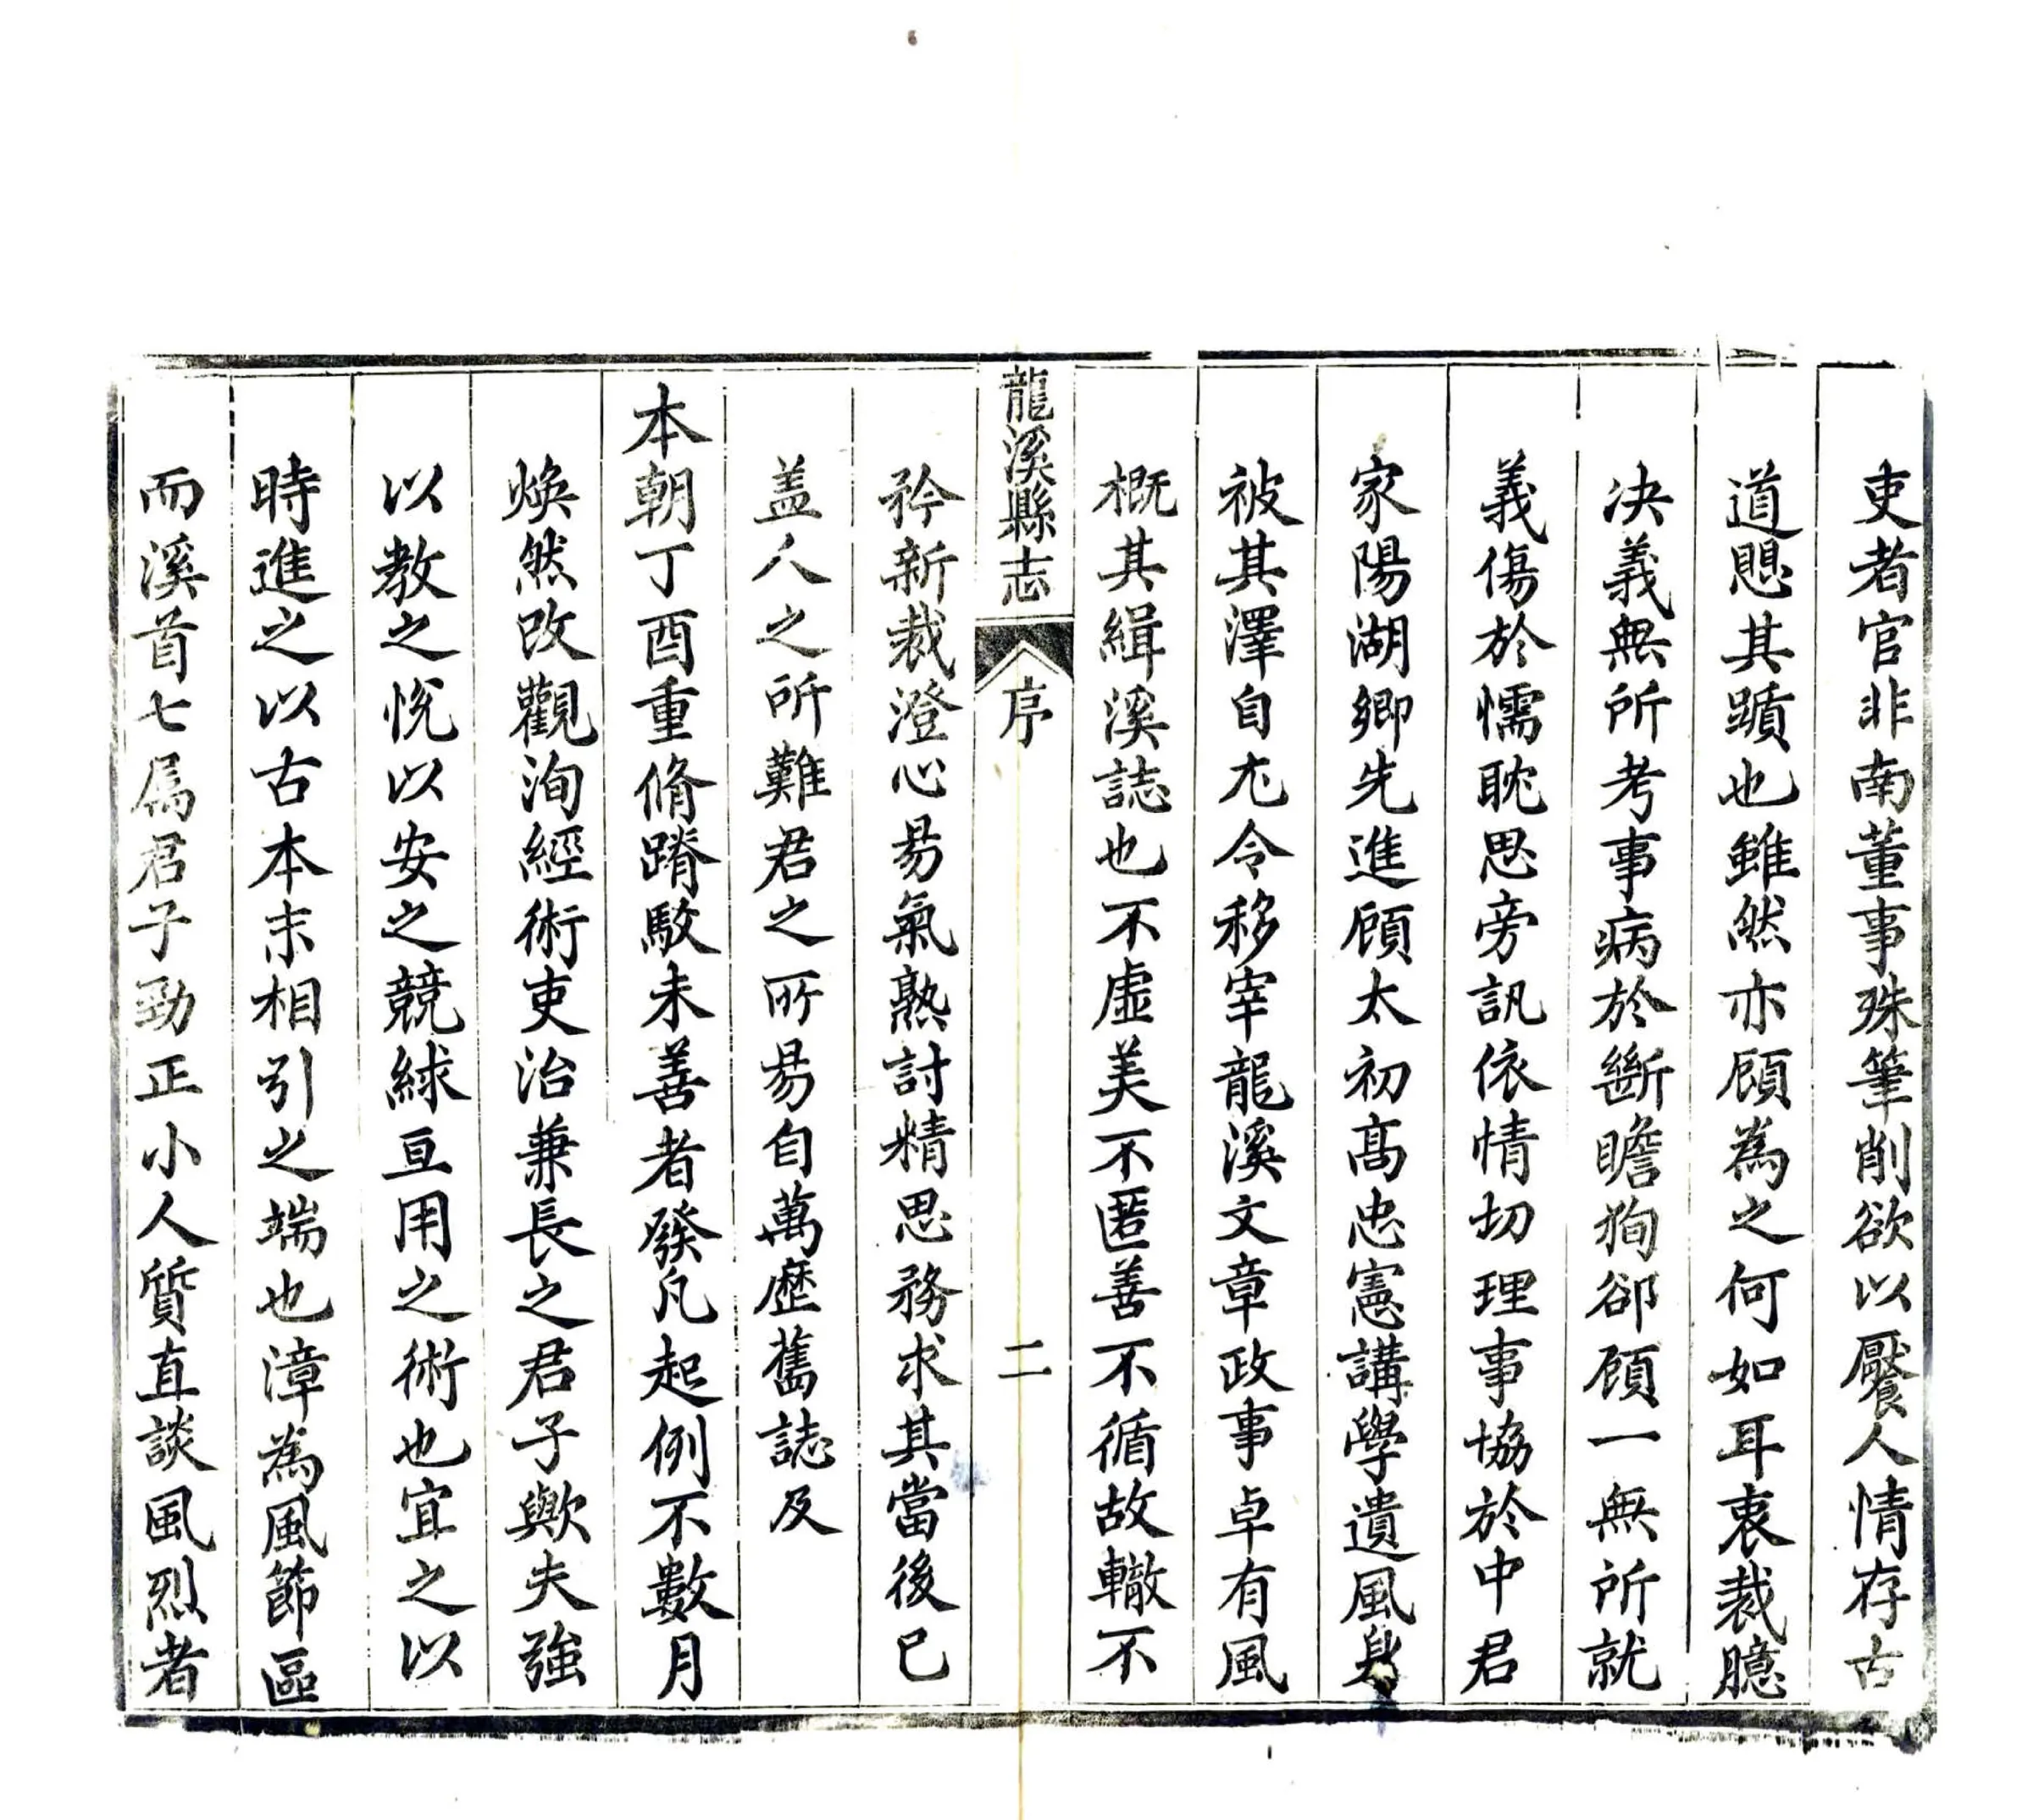 吏者官非南董事殊筆削欲以饜人情存古
道愳其蹟也雖然亦顧為之何如耳衷裁臆
决義無所考事病於斷瞻狥郤顧一無所就
義傷於懦耽思旁訊依情切理事協於中君
家陽湖鄉先進顧太初高忠憲講學遺風身
被其澤自尢令移宰龍溪文章政事卓有風
概其緝溪誌也不虛美不匿善不循故轍不
龍溪縣志 序 二
矜新裁澄心昜氣熟討精思務求其當後已
盖人之所難君之所昜自萬歷舊誌及
本朝丁酉重脩踳駮未善者發凡起例不數月
煥然改觀洵經術吏治兼長之君子歟夫強
以教之悅以安之競絿亘用之術也宜之以
時進之以古本末相引之端也漳為風節區
而溪首七屬君子勁正小人質直談風烈者